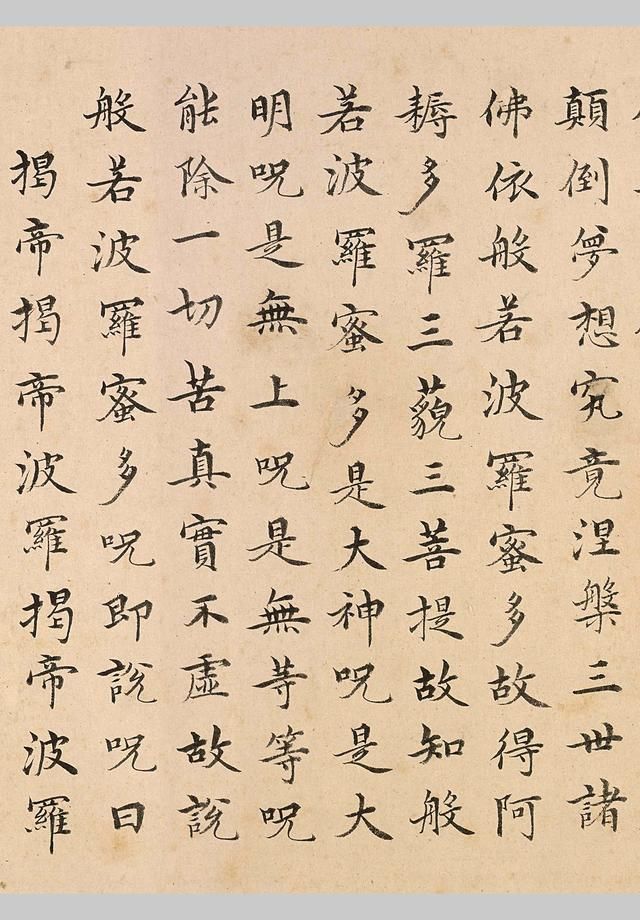 顛倒夢想究竟涅槃三世諸
佛依般若波羅蜜多故得阿
耨多羅三藐三菩提故知般
若波羅蜜多是大神呪是大
明呪是無上呪是無等等呪
能除一切苦真實不虛故說
般若波羅蜜多呪即說呪曰
揭帝揭帝波羅揭帝波羅